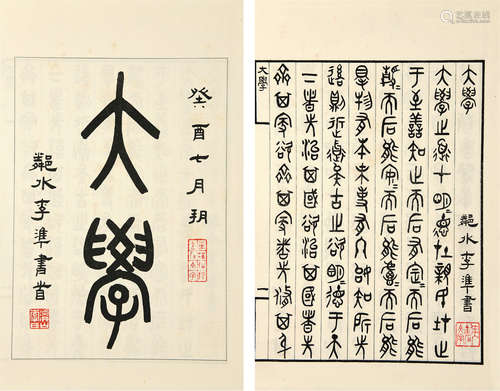 癸酉七月朔
大學
鄰水李準書首
大學
鄰水李準書
大學之道在明明德在親民在止
于至善知止而后有定定而后能
靜靜而后能安安而后能慮慮而后能
得物有本末事有終始知所先
後則近道矣古之欲明明德于天
下者先治其國欲治其國者先
齊其家欲齊其家者先脩其身
大學
二